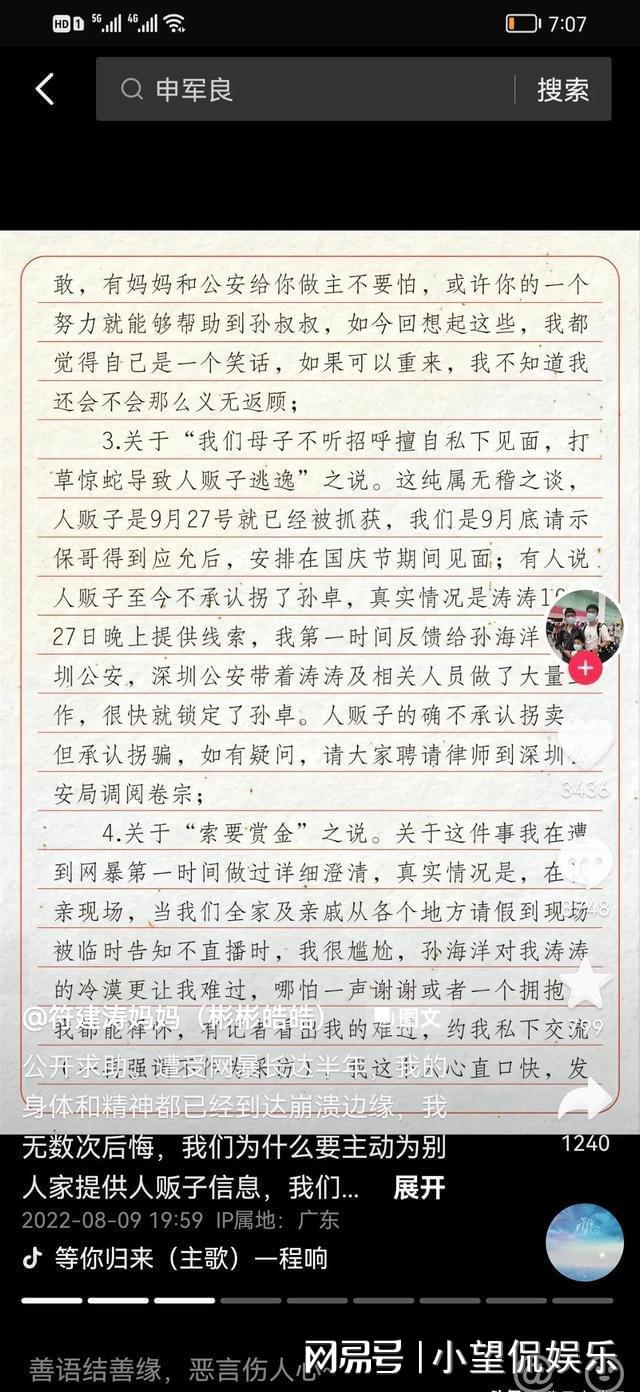 HD 1 5G 4G 7:07
申军良 搜索
敢，有妈妈和公安给你做主不要怕，或许你的一个
努力就能够帮助到孙叔叔，如今回想起这些，我都
觉得自己是一个笑话，如果可以重来，我不知道我
还会不会那么义无返顾；
3.关于“我们母子不听招呼擅自私下见面，打
草惊蛇导致人贩子逃逸”之说。这纯属无稽之谈，
人贩子是9月27号就已经被抓获，我们是9月底请示
保哥得到应允后，安排在国庆节期间见面；有人说
人贩子至今不承认拐了孙卓，真实情况是涛涛1
27日晚上提供线索，我第一时间反馈给孙海洋
圳公安，深圳公安带着涛涛及相关人员做了大量
作，很快就锁定了孙卓。人贩子的确不承认拐卖
但承认拐骗，如有疑问，请大家聘请律师到深圳
安局调阅卷宗；
4.关于“索要赏金”之说。关于这件事我在遭
到网暴第一时间做过详细澄清，真实情况是，在
亲现场，当我们全家及亲戚从各个地方请假到现场
被临时告知不直播时，我很尴尬，孙海洋对我涛涛
的冷漠更让我难过，哪怕一声谢谢或者一个拥抱
我都能释怀，有记者看出我的难过，约我私下交流
强调不作为采访），我这人心直口快，发
3436
799
1240
@符建涛妈妈（彬彬皓皓） 图文
公开求助，遭受网暴长达半年，我的
身体和精神都已经到达崩溃边缘，我
无数次后悔，我们为什么要主动为别
人家提供人贩子信息，我们... 展开
2022-08-09 19:59 IP属地：广东
等你归来（主歌）一程响
善语结善缘，恶言伤人心~
网易号 | 小望侃娱乐